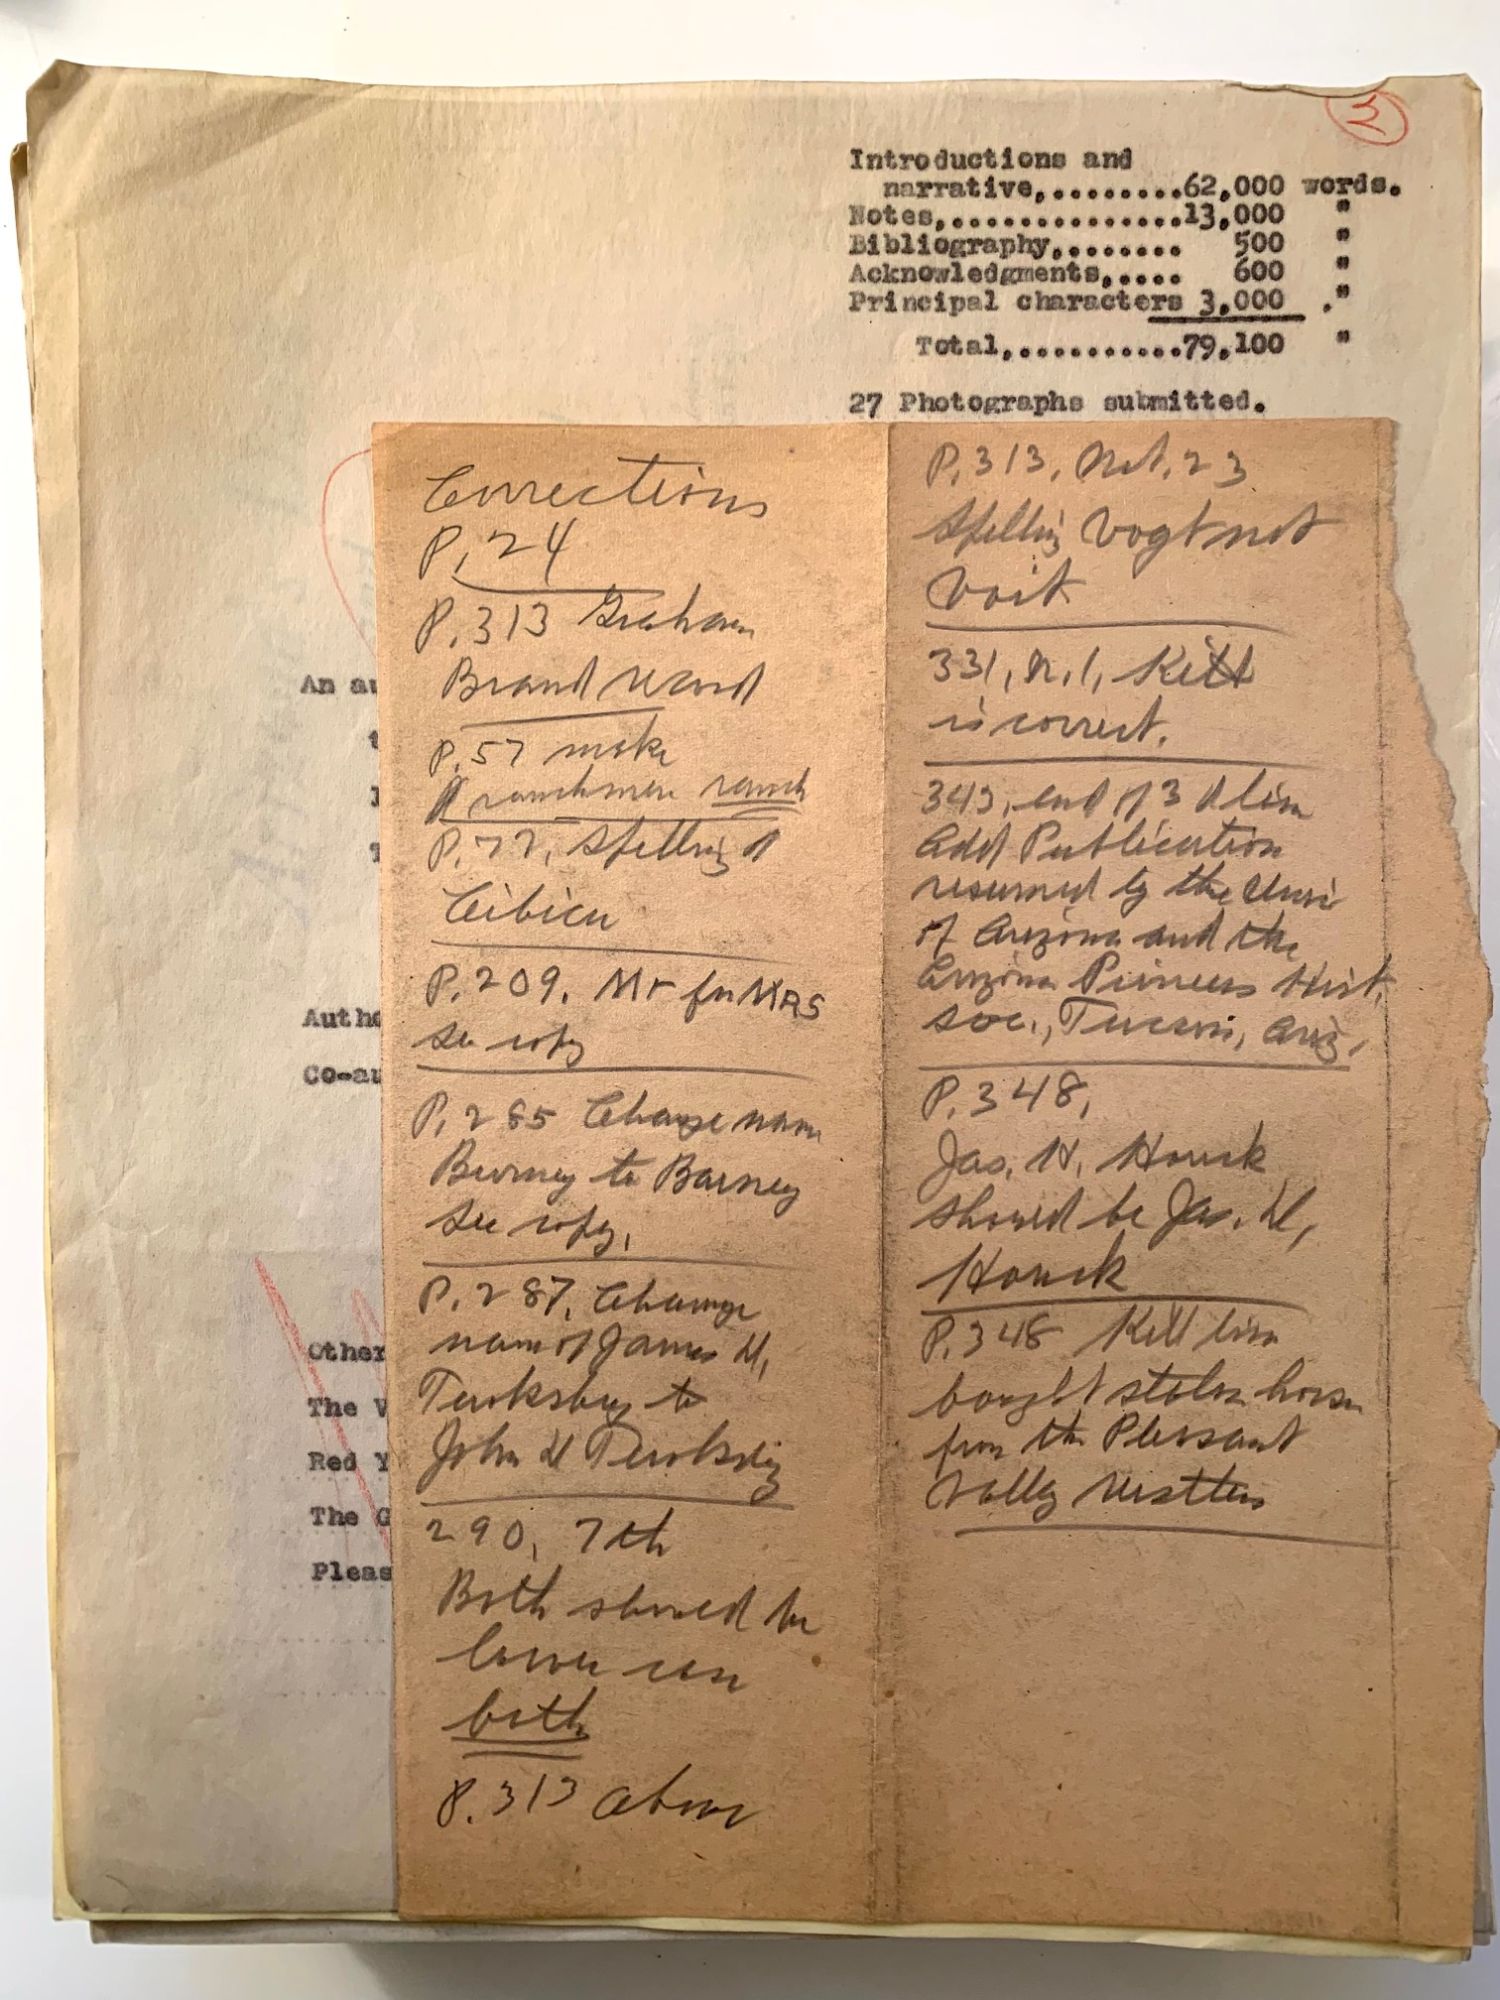 2
Introductions and
narrative,.........62,000 words.
Notes,...............13,000 "
Bibliography,........ 500 "
Acknowledgments,..... 600 "
Principal characters 3,000 . "
Total,...........79,100 "
27 Photographs submitted.
An au
t
Autho
Co-au
Other
The V
Red Y
The G
Pleas
Corrections
P. 24
P. 313 Graham
Brand used
P. 57 make
ranchmen ranch
P. 77, Spelling of
Cibicu
P. 209. Mr for MRS
see copy
P. 285 Change name
Burney to Barney
see copy.
P. 287. Change
name of James D.
Tewksbury to
John D Tewksbury
290, 7th
Both should be
lower case
both
P. 313 above
P. 313, Not. 23
Spelling Vogt not
Voit
331, n. 1, Kitt
is correct.
343, end of 3d line
add Publication
resumed by the Univ
of Arizona and the
Arizona Pioneers Hist.
Soc., Tucson, Ariz.
P. 348,
Jas. H. Houck
should be Jas. D.
Houck
P. 348 Kill line
bought stolen horses
from the Pleasant
Valley rustlers